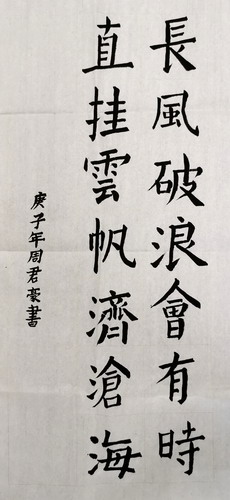 長風破浪會有時
直挂雲帆濟滄海
庚子年周君豪書